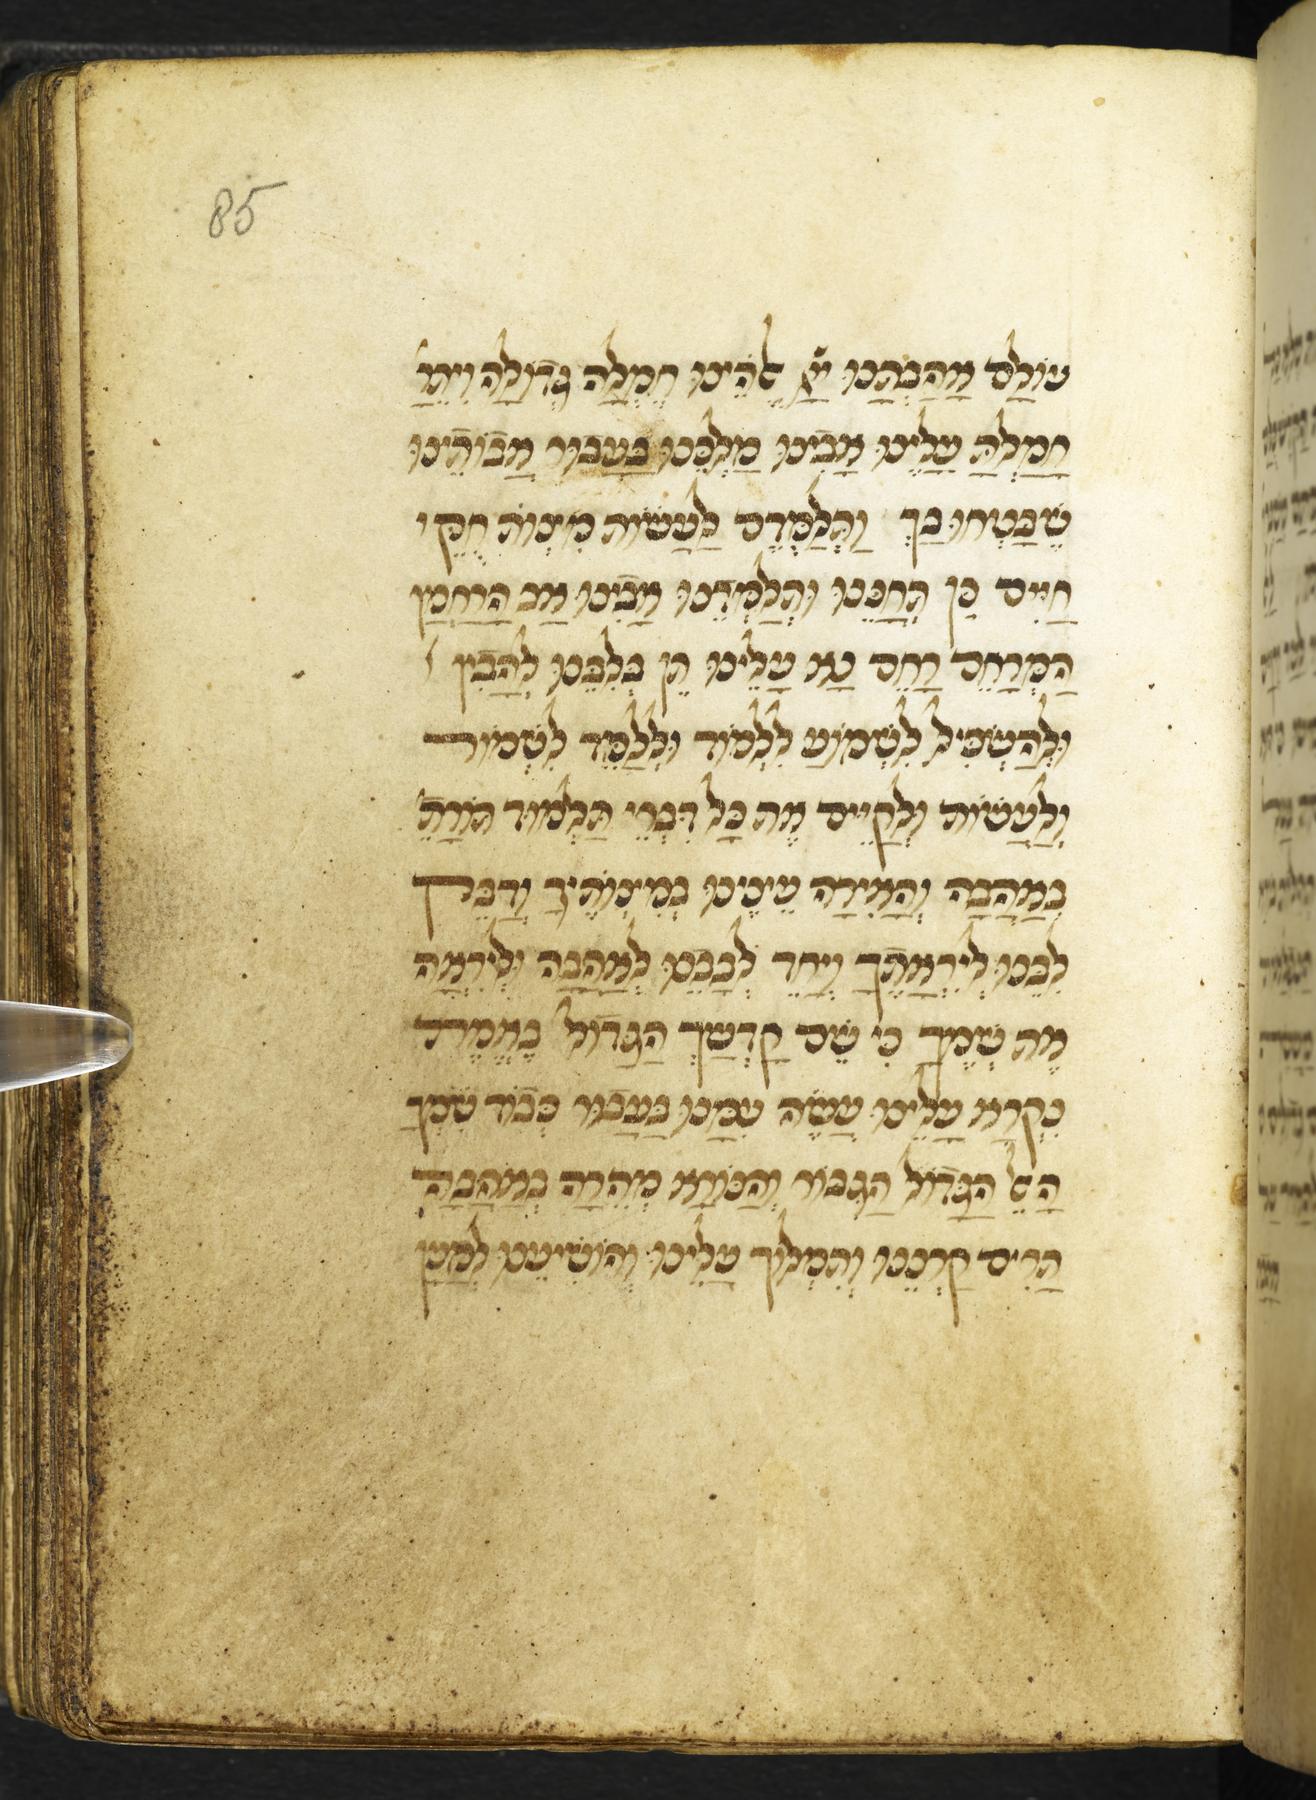 85
עולם אהבתנו יי אלהינו חמלה גדולה וית'
חמלת עלינו אבינו מלכנו בעבור אבותינו
שבטחו בך ותלמדם לעשות מצות חקי
חיים כן תחננו ותלמדנו אבינו אב הרחמן
המרחם רחם נא עלינו תן בלבנו להבין
ולהשכיל לשמוע ללמוד וללמד לשמור
ולעשות ולקיים את כל דברי תלמוד תורת'
באהבה והאירה עינינו במיצותיך ודבק
לבנו ליראתך ויחד לבבנו לאהבה וליראה
את שמך כי שם קדשך הגדול באמת
נקרא עלינו עשה עמנו בעבור כבוד שמך
האל הגדול הגבור והנורא מהרה באהבה
הרים קרננו ותמלוך עלינו והושיענו למען